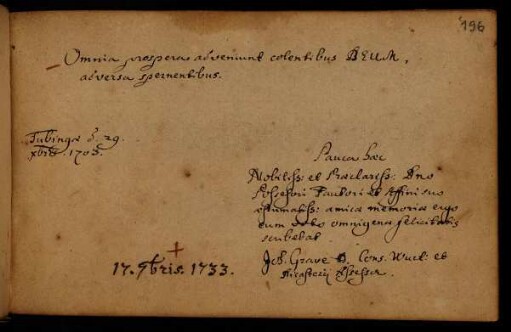 196
Omnia prospera adveniunt colentibus DEUM,
adversa spernentibus.
Tubingæ d. 29.
Xbris. 1703.
Pauca hæc
Nobiliss: et Præclariss: Dno
Possessori Fautori et Affini suo
æstumatiss: amica memoria ergo
cum voto omnigenæ felicitatis
scribebat
Joh. Grave D. Cons. Wurt: et
Dicasterii Assessor.
† 17. 9bris. 1733.